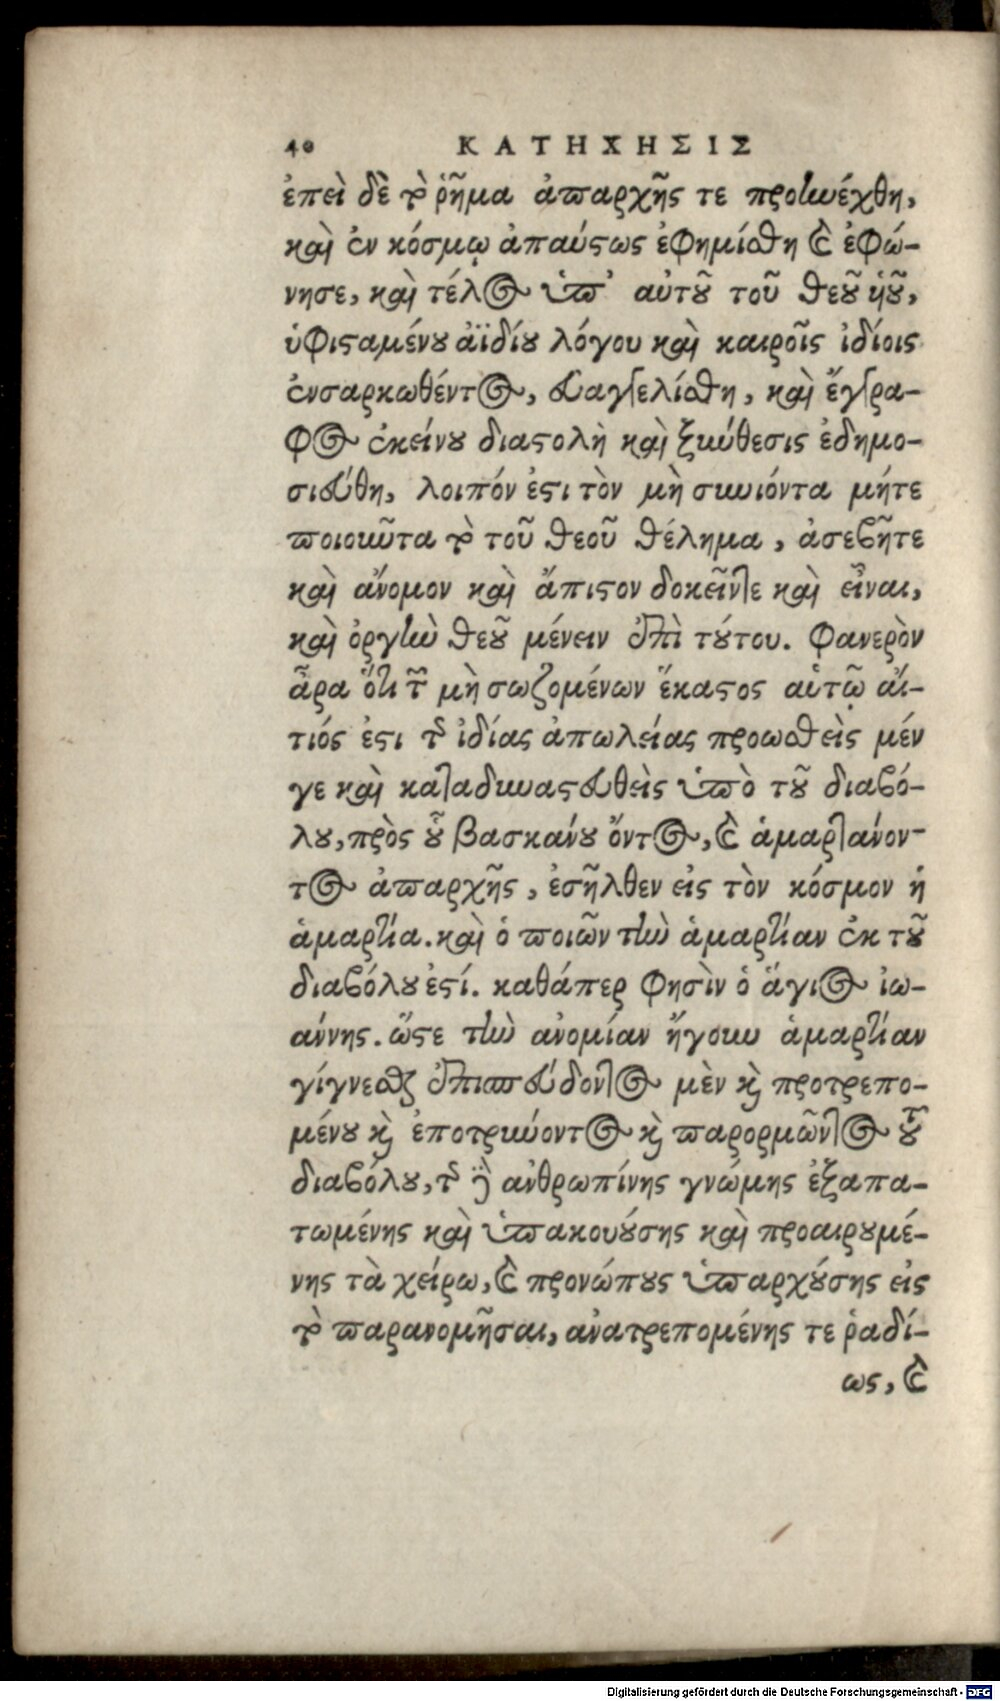 40 ΚΑΤΗΧΗΣΙΣ
ἐπεὶ δὲ τὸ ῥῆμα ἀπαρχῆς τε προηνέχθη,
καὶ ἐν κόσμῳ ἀπαύστως ἐφημίσθη καὶ ἐφώ-
νησε, καὶ τέλος ὑπ' αὐτοῦ τοῦ θεοῦ ὑοῦ,
ὑφισταμένου ἀϊδίου λόγου καὶ καιροῖς ἰδίοις
ἐνσαρκωθέντος, εὐαγγελίσθη, καὶ ἔγγρα-
φος ἐκείνου διαστολὴ καὶ ξυνθεσις ἐδημο-
σιεύθη, λοιπόν ἐστι τὸν μὴ συνιόντα μήτε
ποιοιῦντα τὸ τοῦ θεοῦ θέλημα, ἀσεβῆτε
καὶ ἄνομον καὶ ἄπιστον δοκεῖντε καὶ εἶναι,
καὶ ὀργὴν θεοῦ μένειν ἐπὶ τούτου. Φανερὸν
ἆρα ὅτι τῶν μὴ σωζομένων ἕκαστος αὑτῷ αἴ-
τιός ἐστι τῆς ἰδίας ἀπωλείας προωσθεὶς μέν
γε καὶ καταδυναστευθεὶς ὑπὸ τοῦ διαβό-
λου, πρὸς οὗ βασκάνου ὄντος, καὶ ἁμαρτάνον-
τος ἀπαρχῆς, ἐσῆλθεν εἰς τὸν κόσμον ἡ
ἁμαρτία. καὶ ὁ ποιῶν τὴν ἁμαρτίαν ἐκ τοῦ
διαβόλου ἐστί. καθάπερ φησὶν ὁ ἅγιος ἰω-
άννης. ὥστε τὴν ἀνομίαν ἤγουν ἁμαρτίαν
γίγνεσθαι ἐπισπεύδοντος μὲν καὶ προτρεπο-
μένου καὶ ἐποτρύνοντος καὶ παρορμῶντος τοῦ
διαβόλου, τῆς δὲ ἀνθρωπίνης γνώμης ἐξαπα-
τωμένης καὶ ὑπακουούσης καὶ προαιρουμέ-
νης τὰ χείρω, καὶ προνώπους ὑπαρχούσης εἰς
τὸ παρανομῆσαι, ἀνατρεπομένης τε ῥαδί-
ως, καὶ
Digitalisierung gefördert durch die Deutsche Forschungsgemeinschaft - DFG